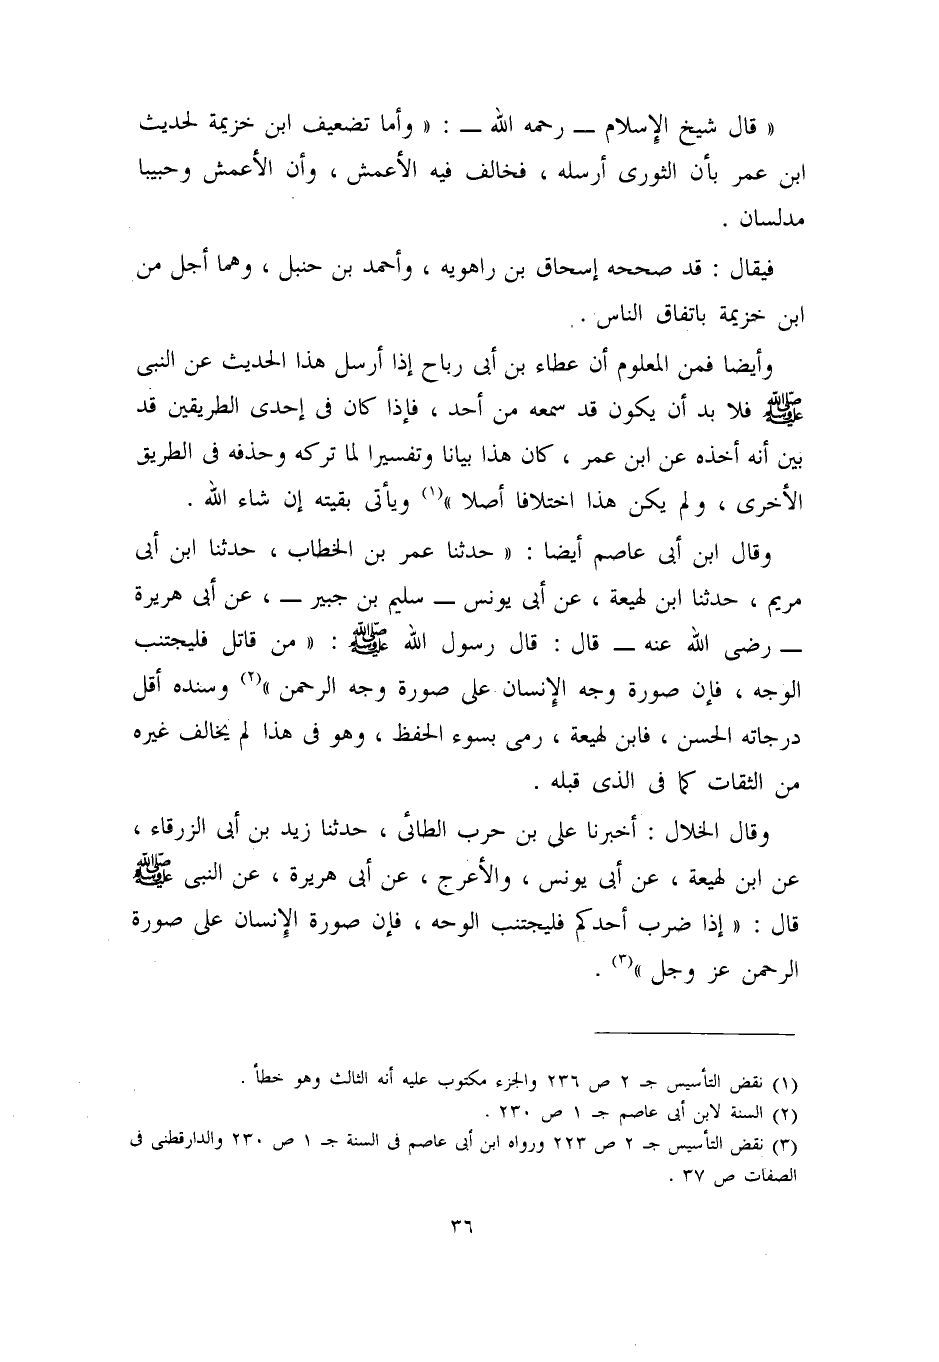 « قال شيخ الإسلام ــ رحمه الله ــ : « وأما تضعيف ابن خزيمة لحديث
ابن عمر بأن الثورى أرسله ، فخالف فيه الأعمش ، وأن الأعمش وحبيبا
مدلسان .
فيقال : قد صححه إسحاق بن راهويه ، وأحمد بن حنبل ، وهما أجل من
ابن خزيمة باتفاق الناس .
وأيضا فمن المعلوم أن عطاء بن أبى رباح إذا أرسل هذا الحديث عن النبى
ﷺ فلا بد أن يكون قد سمعه من أحد ، فإذا كان فى إحدى الطريقين قد
بين أنه أخذه عن ابن عمر ، كان هذا بيانا وتفسيرا لما تركه وحذفه فى الطريق
الأخرى ، ولم يكن هذا اختلافا أصلا »(١) ويأتى بقيته إن شاء الله .
وقال ابن أبى عاصم أيضا : « حدثنا عمر بن الخطاب ، حدثنا ابن أبى
مريم ، حدثنا ابن لهيعة ، عن أبى يونس ــ سليم بن جبير ــ ، عن أبى هريرة
ــ رضى الله عنه ــ قال : قال رسول الله ﷺ : « من قاتل فليجتنب
الوجه ، فإن صورة وجه الإنسان على صورة وجه الرحمن »(٢) وسنده أقل
درجاته الحسن ، فابن لهيعة ، رمى بسوء الحفظ ، وهو فى هذا لم يخالف غيره
من الثقات كما فى الذى قبله .
وقال الخلال : أخبرنا على بن حرب الطائى ، حدثنا زيد بن أبى الزرقاء ،
عن ابن لهيعة ، عن أبى يونس ، والأعرج ، عن أبى هريرة ، عن النبى ﷺ
قال : « إذا ضرب أحدكم فليجتنب الوحه ، فإن صورة الإنسان على صورة
الرحمن عز وجل »(٣) .
(١) نقض التأسيس جـ ٢ ص ٢٣٦ والجزء مكتوب عليه أنه الثالث وهو خطأ .
(٢) السنة لابن أبى عاصم جـ ١ ص ٢٣٠ .
(٣) نقض التأسيس جـ ٢ ص ٢٢٣ ورواه ابن أبى عاصم فى السنة جـ ١ ص ٢٣٠ والدارقطنى فى
الصفات ص ٣٧ .
٣٦